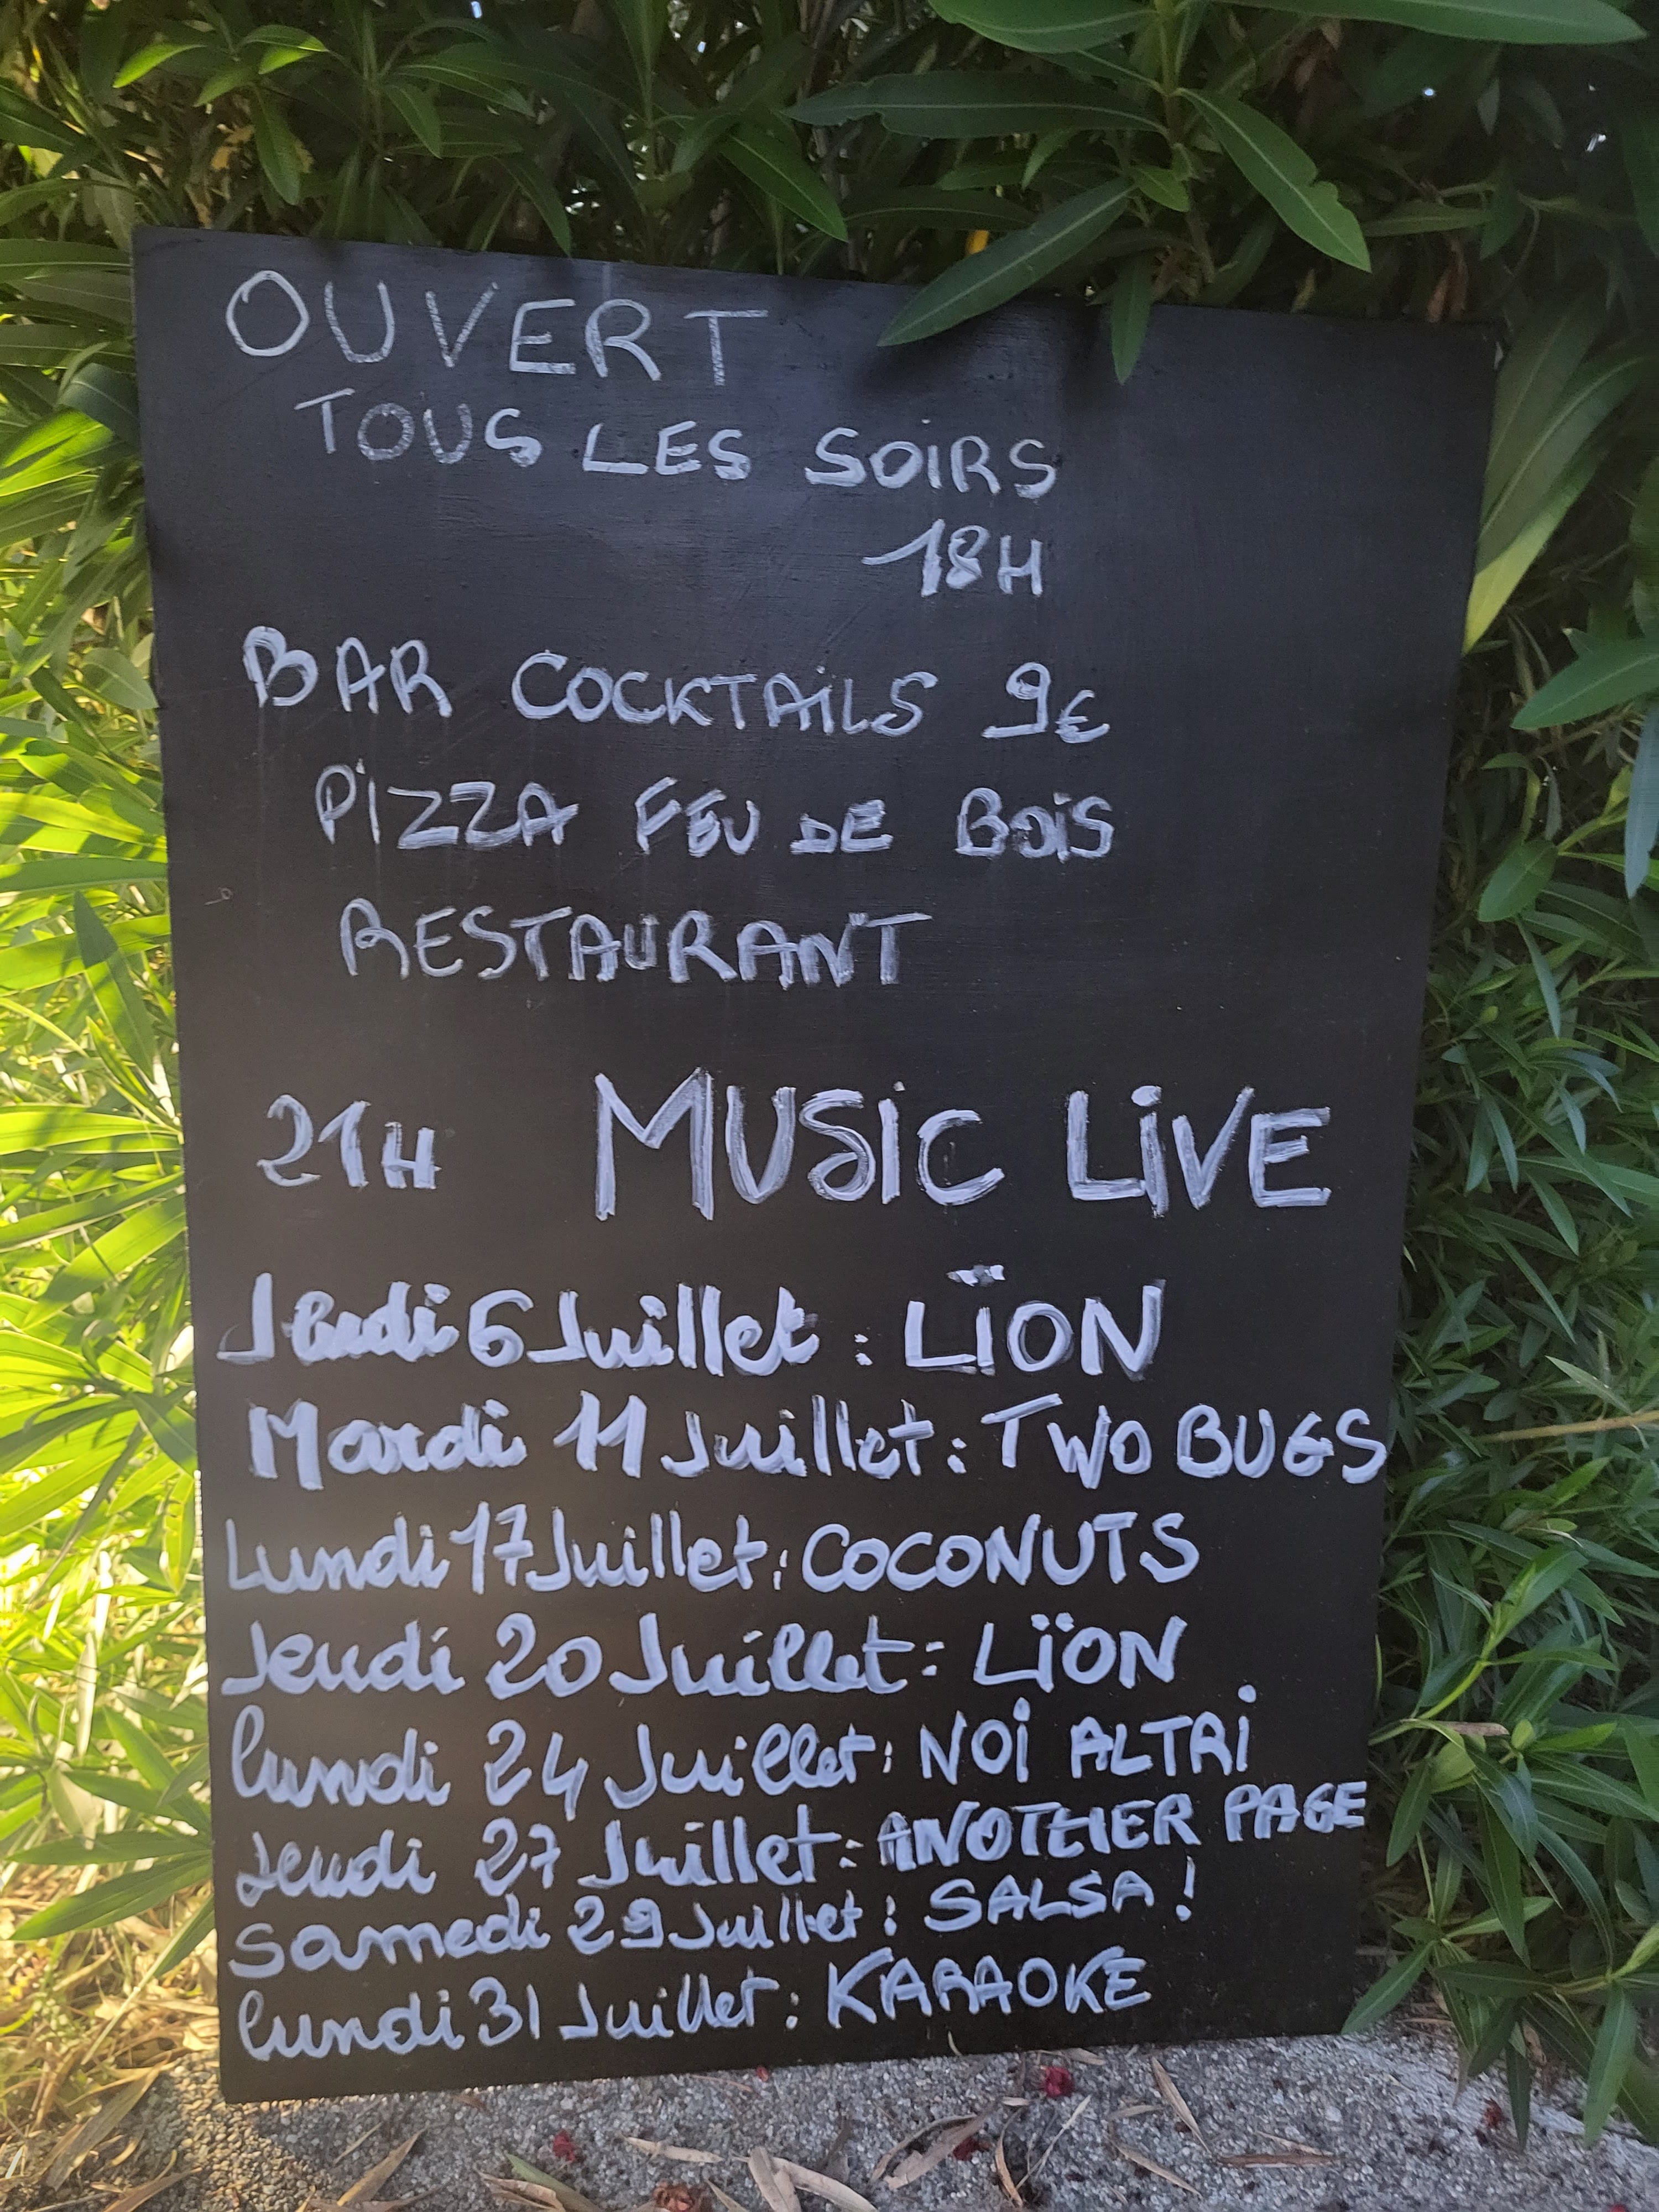 OUVERT
TOUS LES SOIRS
18H
BAR COCKTAILS 9€
PIZZA FEU DE BOIS
RESTAURANT
21H MUSIC LIVE
Jeudi 6 Juillet : LÏON
Mardi 11 Juillet : TWO BUGS
Lundi 17 Juillet : COCONUTS
Jeudi 20 Juillet : LÏON
lundi 24 Juillet : NOI ALTRI
Jeudi 27 Juillet : ANOTHER PAGE
Samedi 29 Juillet : SALSA !
lundi 31 Juillet : KARAOKE